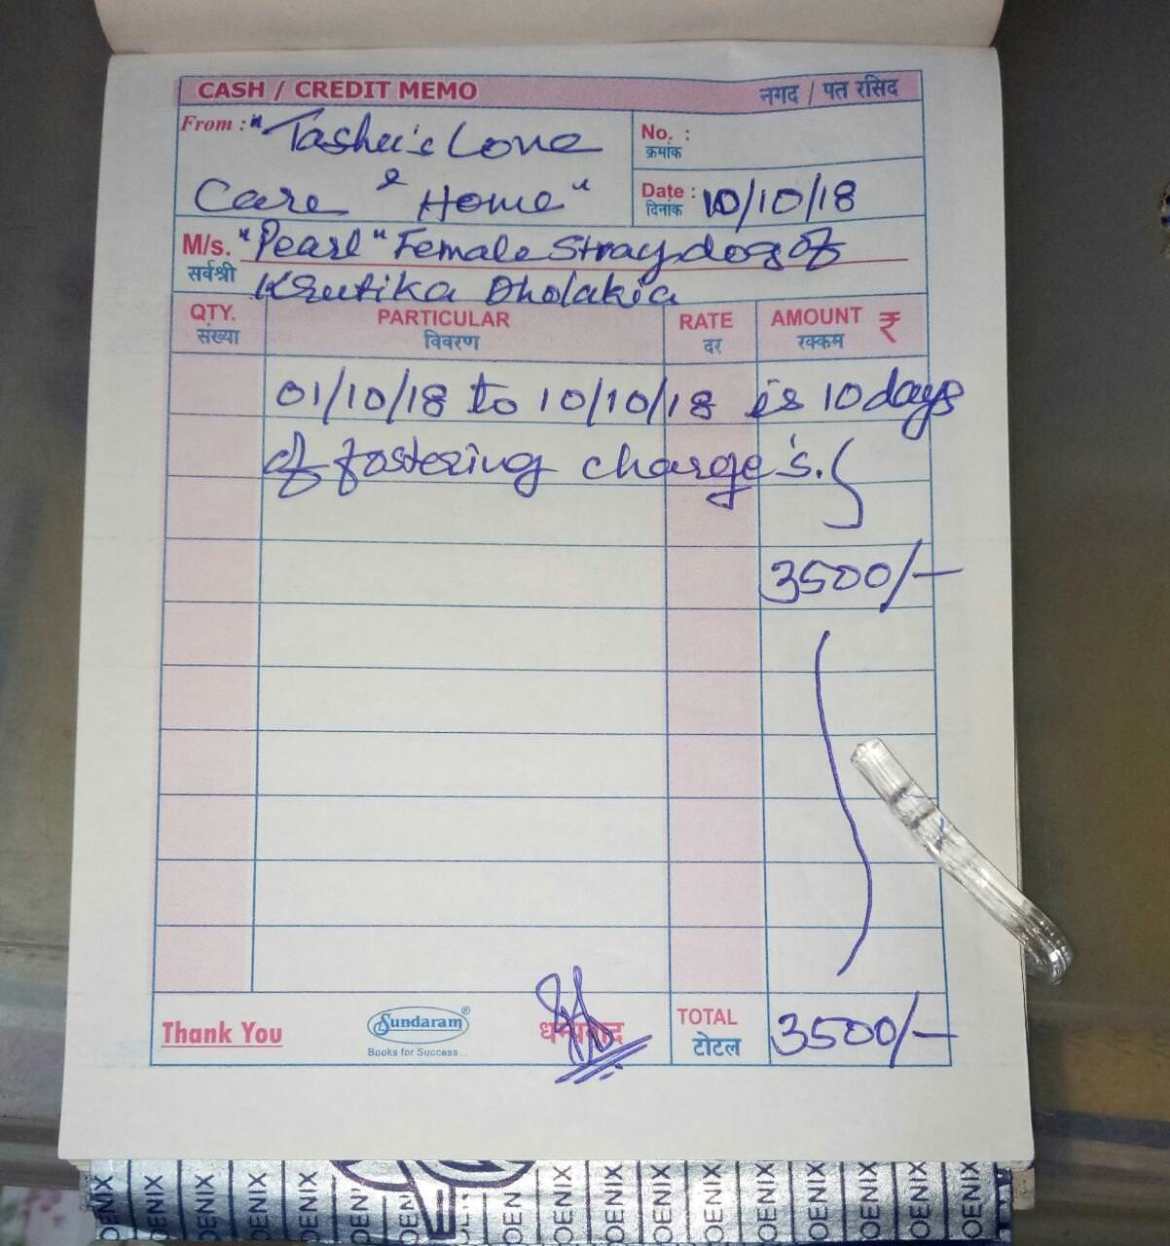 CASH / CREDIT MEMO नगद / पत रसिद
From : "Tashu's Love
No. :
क्रमांक
Care & Home"
Date : 10/10/18
दिनांक
M/s. "Pearl" Female Stray dog of
सर्वश्री Krutika Dholakia
QTY. PARTICULAR RATE AMOUNT ₹
संख्या विवरण दर रक्कम
01/10/18 to 10/10/18 is 10 days
of fostering charge's.
3500/-
Thank You Sundaram® धन्यवाद TOTAL 3500/-
Books for Success... टोटल
OENIX OENIX OENIX OENIX OENIX OEN OEN OEN OENIX OENIX OENIX OENIX OENIX OENIX OENIX OENIX OENIX